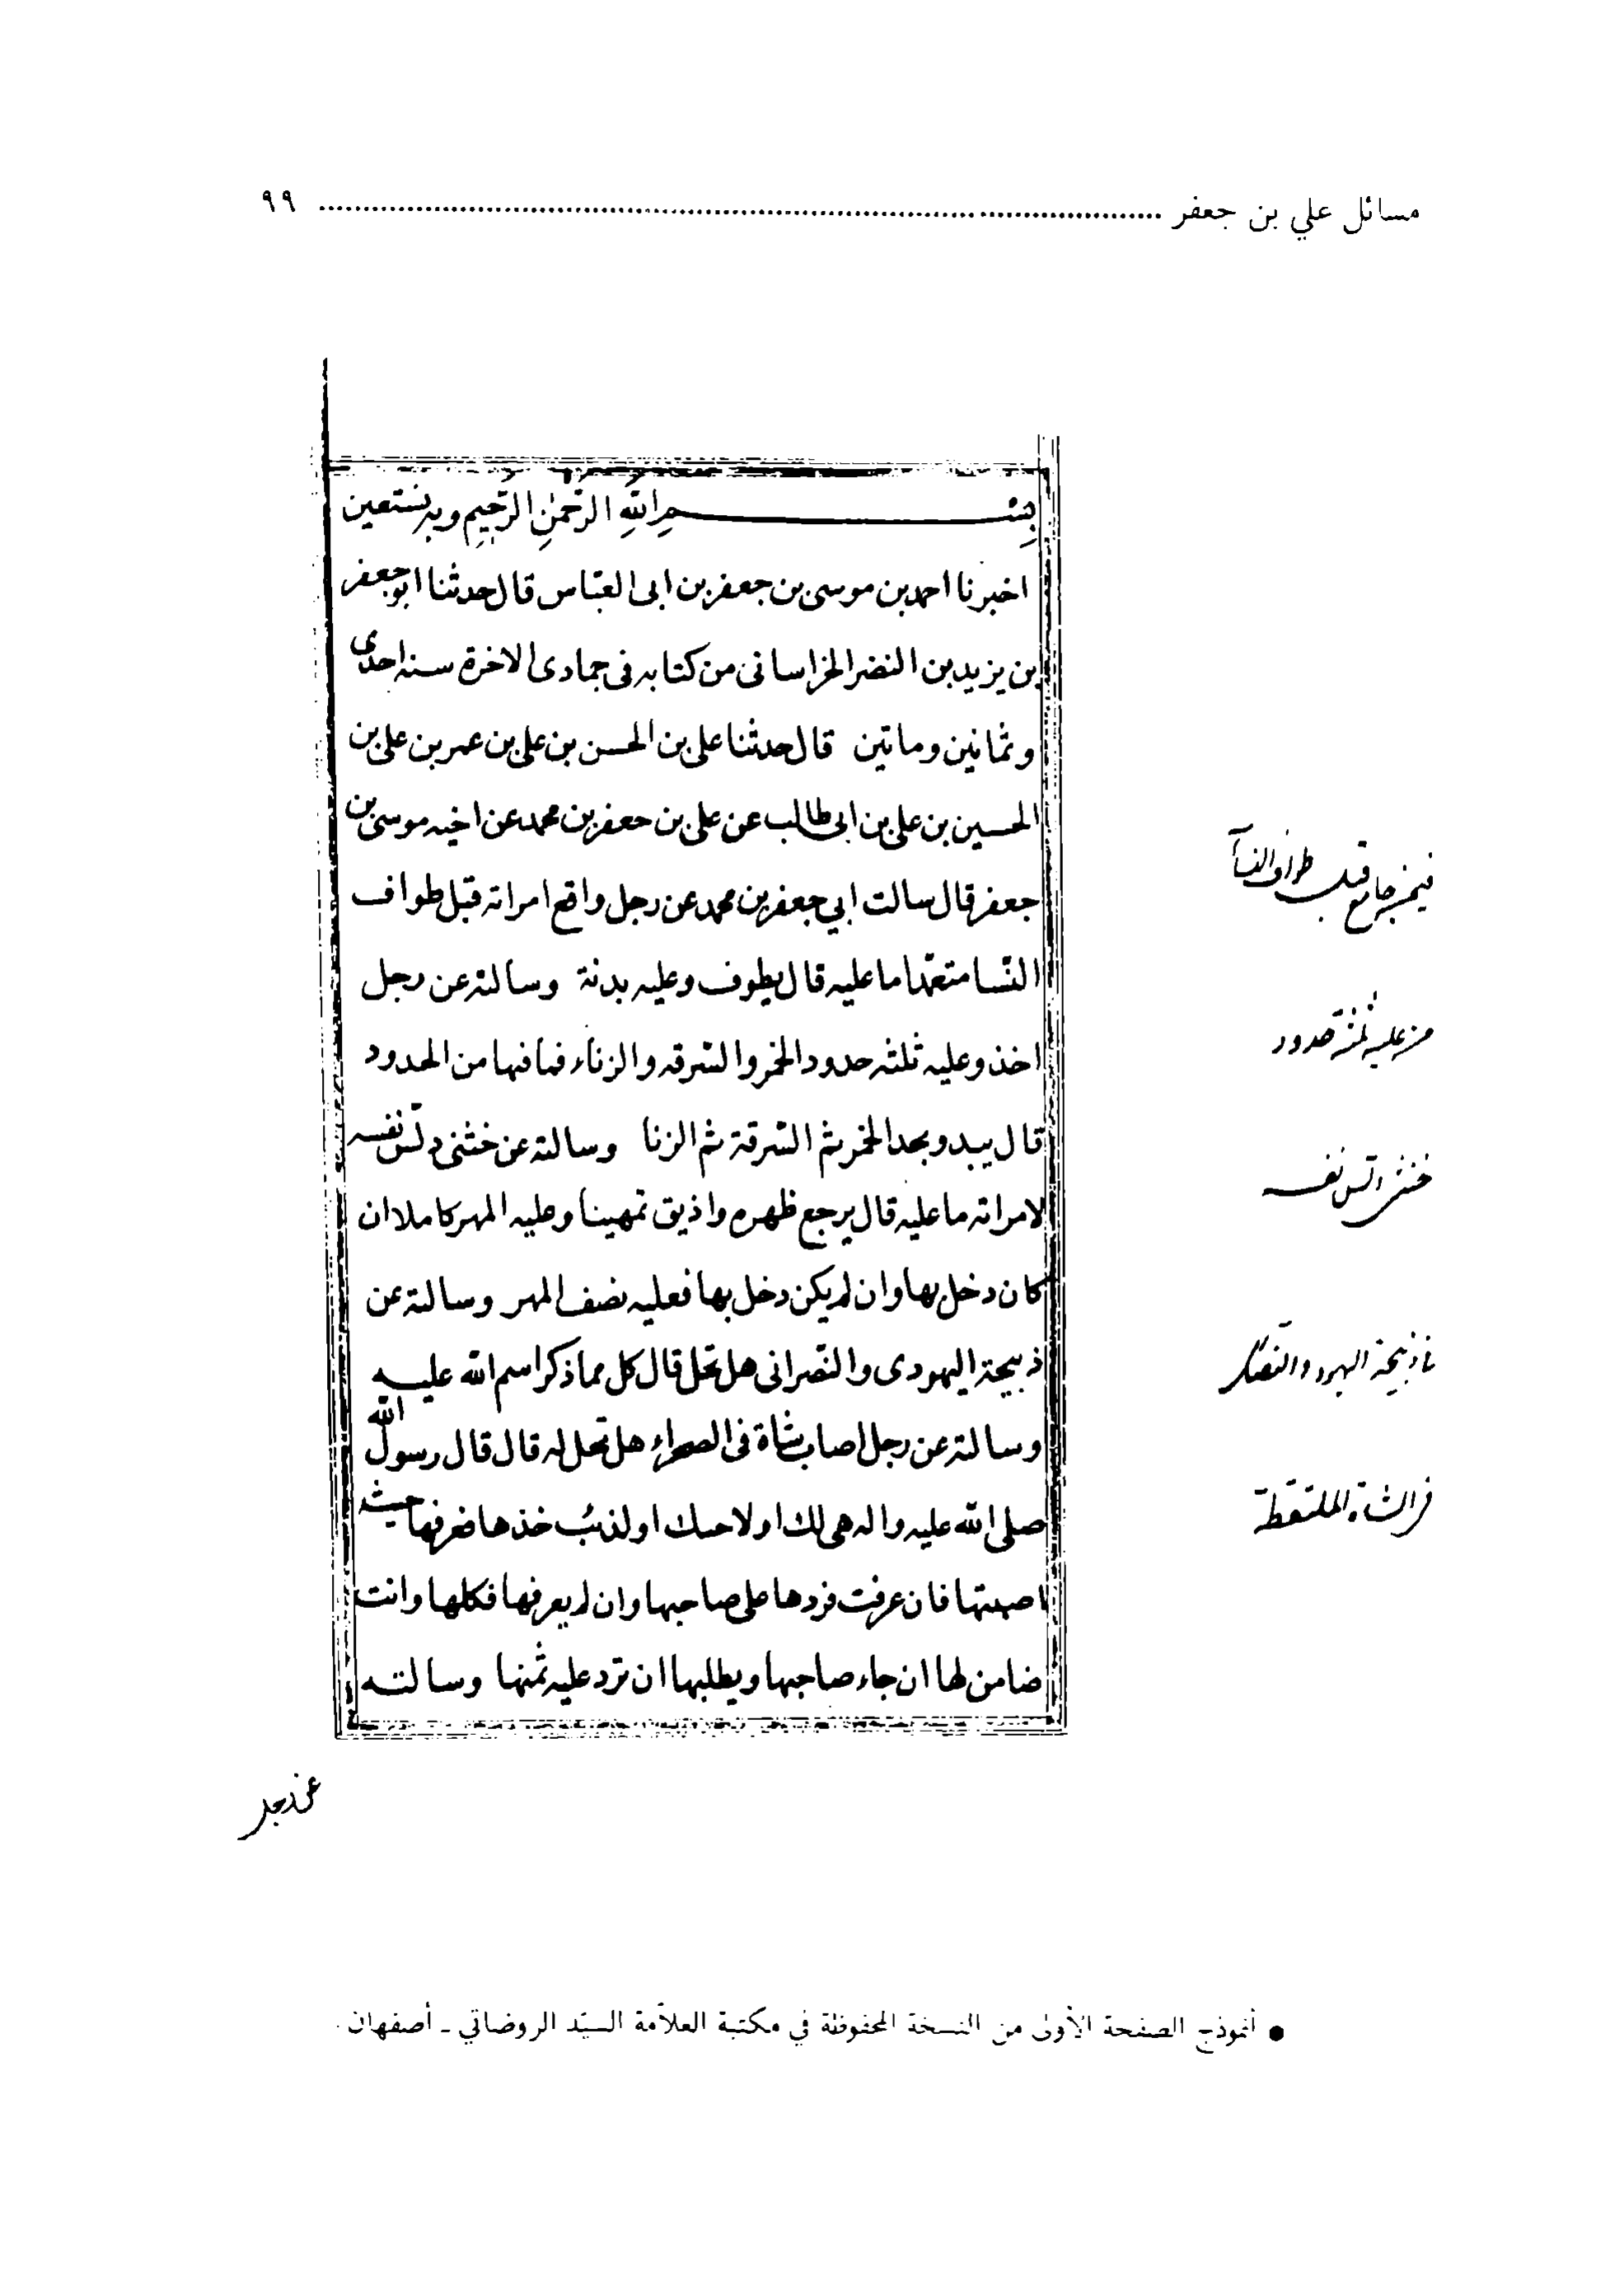 مسائل علي بن جعفر ........................................ ٩٩
بسم الله الرحمن الرحیم وبه نستعین
اخبرنا احمد بن موسی بن جعفر بن ابی العبّاس قال حدثنا ابو جعفر
بن یزید بن النضر الخراسانی من کتابه فی جمادی الاخرة سنه احدی
وثمانین وماتین قال حدثنا علی بن الحسن بن علی بن عمر بن علی بن
الحسین بن علی بن ابی طالب عن علی بن جعفر بن محمد عن اخیه موسی بن
جعفر قال سالت ابی جعفر بن محمد عن رجل واقع امراته قبل طواف
النّسا متعمّدا ما علیه قال یطوف وعلیه بدنة وسالته عن رجل
اخذ وعلیه ثلثه حدود الخمر والسّرقه والزناء فما فیها من الحدود
قال یبدو بحد الخمر ثم السّرقة ثم الزنا وسالته عن خنثی دلّس نفسه
لامراته ما علیه قال یرجع ظهره واذیق تمهینا وعلیه المهر کاملا ان
کان دخل بها وان لم یکن دخل بها فعلیه نصف المهر وسالته عن
ذبیحة الیهودی والنّصرانی هل تحل قال کل مما ذکر اسم الله علیه
وسالته عن رجل اصاب شاة فی الصحراء هل تحل له قال قال رسول الله
صلی الله علیه واله هی لك او لاخیك او لذئب خذها فعرفها حیث
اصبتها فان عرفت فردها علی صاحبها وان لم یعرفها فکلها وانت
ضامن لها ان جاء صاحبها ویطلبها ان ترد علیه ثمنها وسالته
فیمن جامع قبل طواف النسآ
من علیه ثلثة حدود
خنثی دلّس نفسه
ذبیحة الیهود والنصاری
فی الشاة الملتقطة
عن رجل
● أنموذج الصفحة الأولى من النسخة المحفوظة في مكتبة العلاّمة السيّد الروضاتي ـ أصفهان.